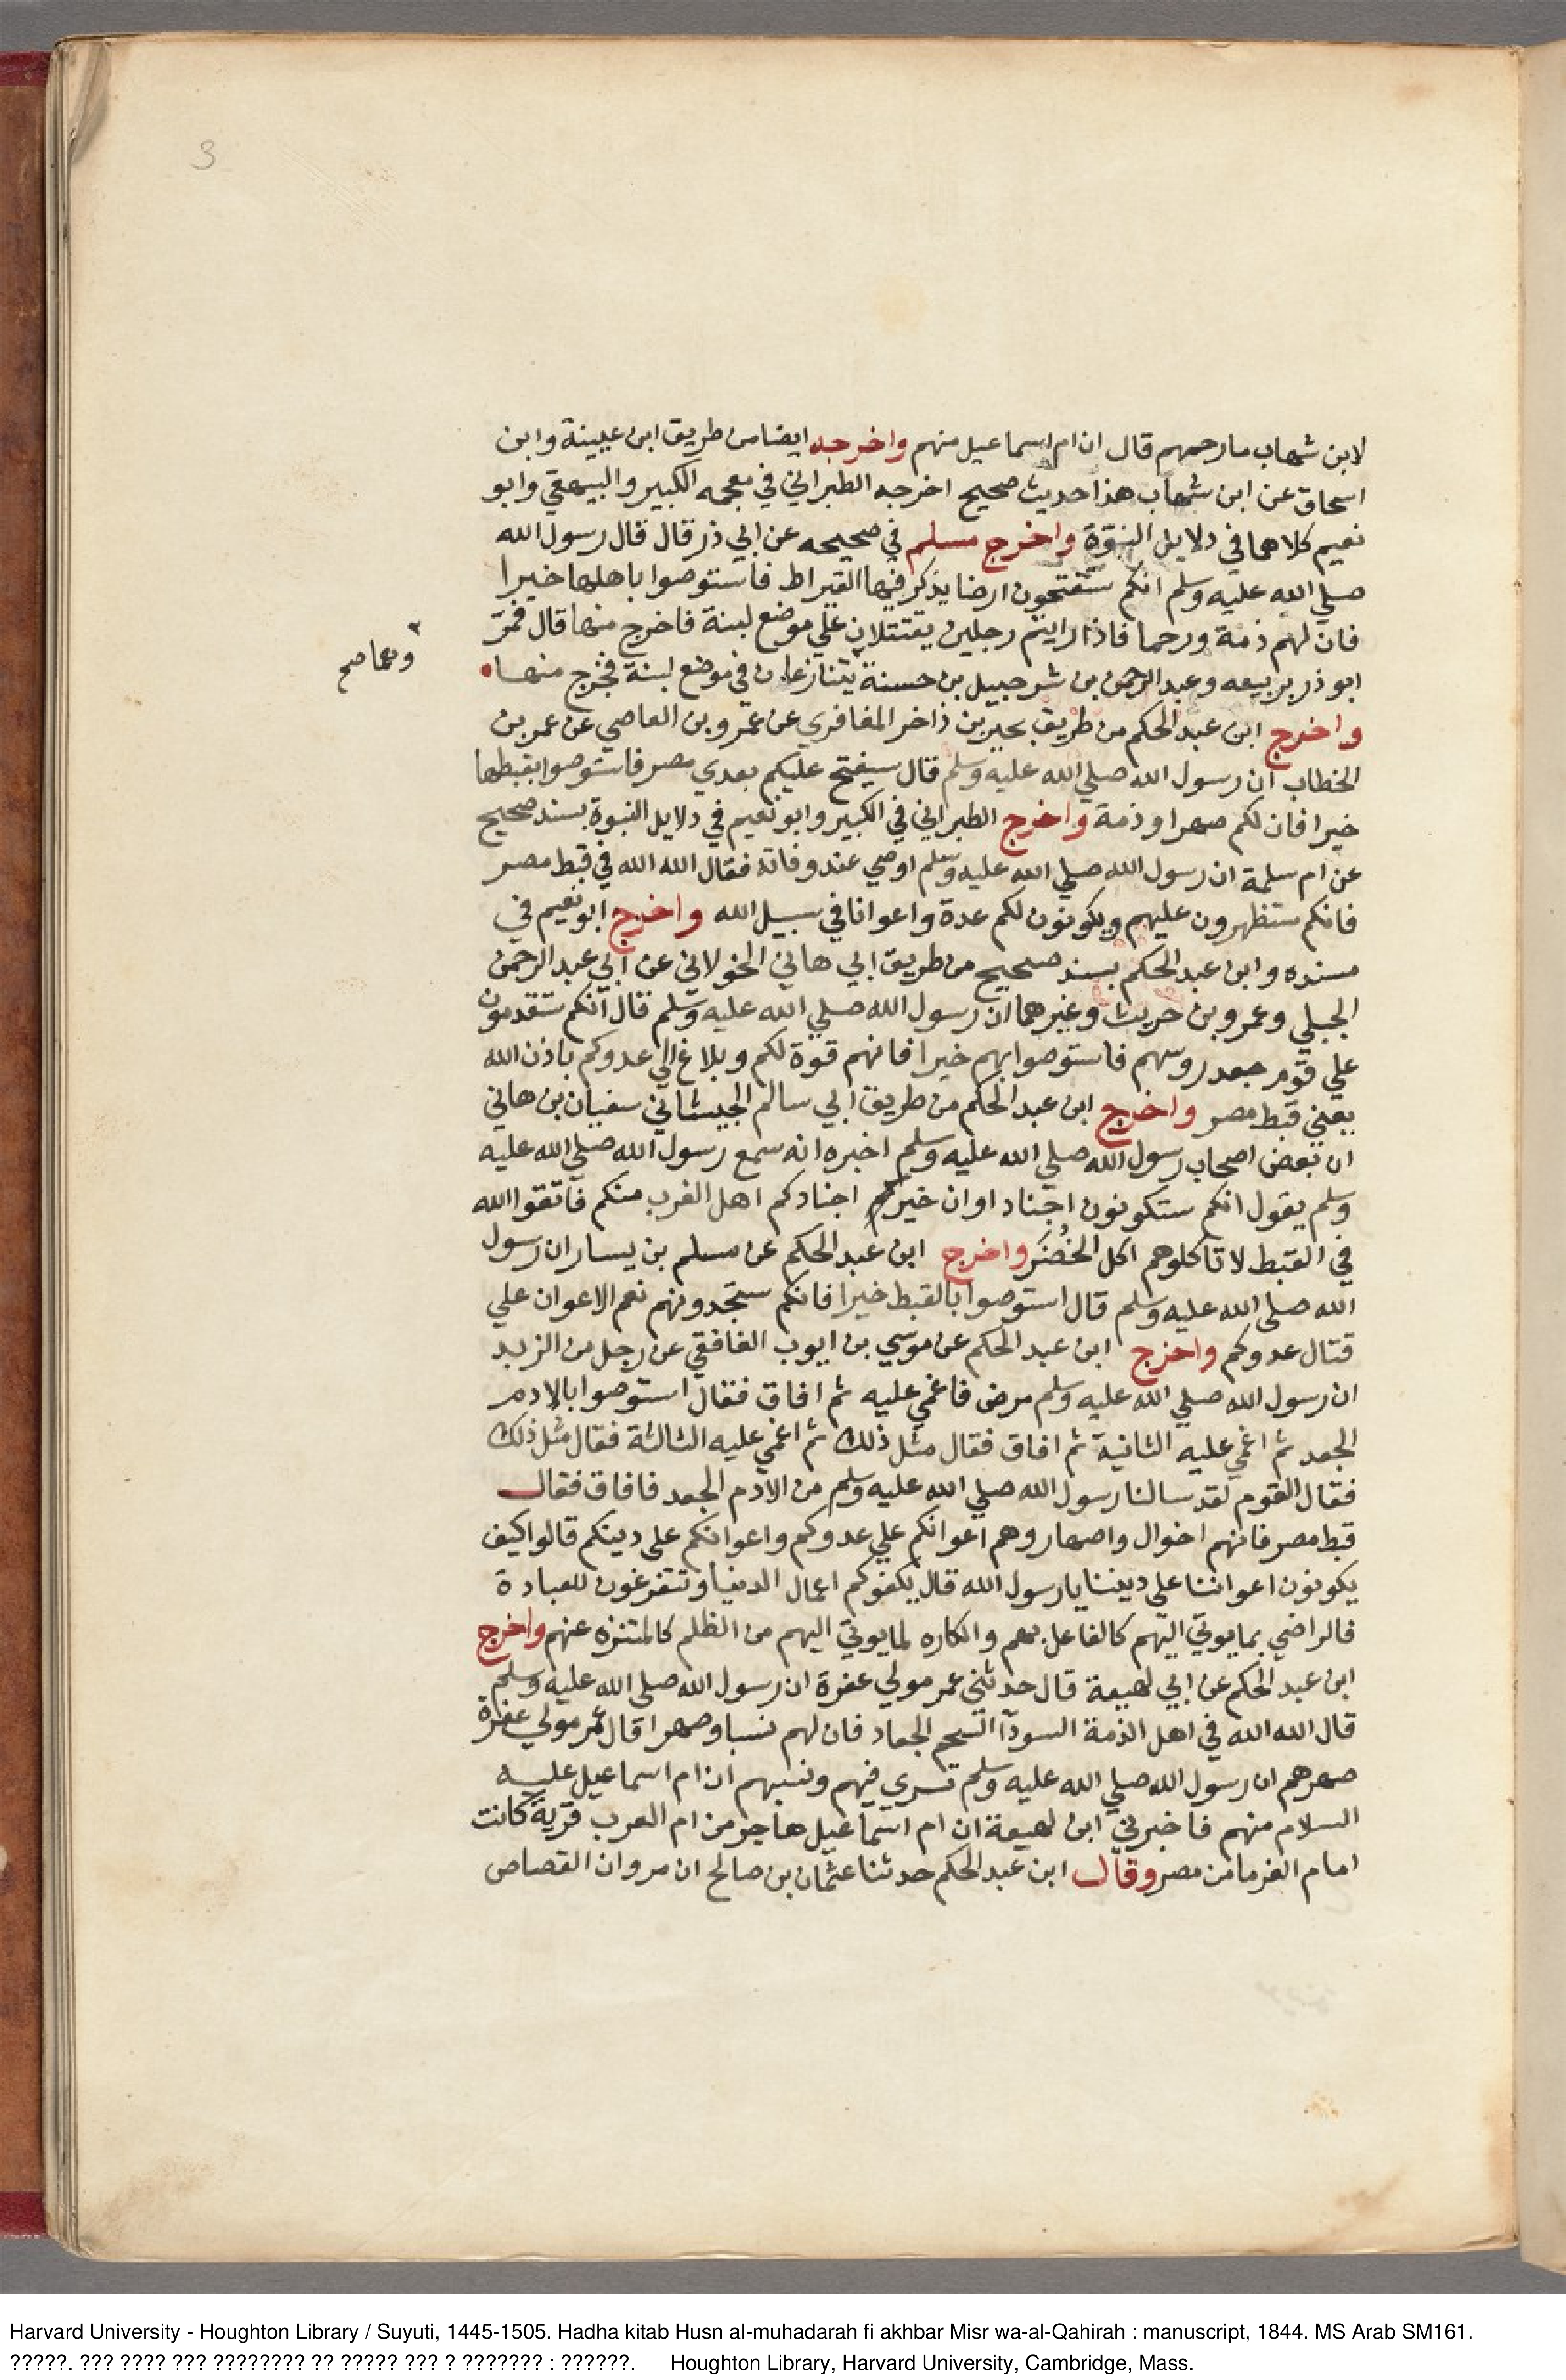 3
لابن شهاب ما رحمهم قال ان ام اسماعيل منهم واخرجه ايضا من طريق ابن عيينة وابن
اسحاق عن ابن شهاب هذا حديث صحيح اخرجه الطبراني في معجمه الكبير والبيهقي وابو
نعيم كلاهما في دلايل النبوة واخرج مسلم في صحيحه عن ابي ذر قال قال رسول الله
صلي الله عليه وسلم انكم ستفتحون ارضا يذكر فيها القيراط فاستوصوا باهلها خيرا
فان لهم ذمة ورحما فاذا رايتم رجلين يقتتلان علي موضع لبنة فاخرج منها قال فمر
وهما صح
ابو ذر بربيعه وعبد الرحمن بن شرحبيل بن حسنة يتنازعان في موضع لبنة فخرج منها
واخرج ابن عبد الحكم من طريق بحير بن ذاخر المغافري عن عمرو بن العاصي عن عمر بن
الخطاب ان رسول الله صلي الله عليه وسلم قال سيفتح عليكم بعدي مصر فاستوصوا بقبطها
خيرا فان لكم صهرا وذمة واخرج الطبراني في الكبير وابو نعيم في دلايل النبوة بسند صحيح
عن ام سلمة ان رسول الله صلي الله عليه وسلم اوصي عند وفاته فقال الله الله في قبط مصر
فانكم ستظهرون عليهم ويكونون لكم عدة واعوانا في سبيل الله واخرج ابو نعيم في
مسنده وابن عبد الحكم بسند صحيح من طريق ابي هاني الخولاني عن ابي عبد الرحمن
الجبلي وعمرو بن حريث وغيرهما ان رسول الله صلي الله عليه وسلم قال انكم ستقدمون
علي قوم جعد روسهم فاستوصوا بهم خيرا فانهم قوة لكم وبلاغ الي عدوكم باذن الله
يعني قبط مصر واخرج ابن عبد الحكم من طريق ابي سالم الجيشاني سفيان بن هاني
ان بعض اصحاب رسول الله صلي الله عليه وسلم اخبره انه سمع رسول الله صلي الله عليه
وسلم يقول انكم ستكونون اجنادا وان خير اجنادكم اهل الغرب منكم فاتقوا الله
في القبط لا تاكلوهم اكل الخُضَر واخرج ابن عبد الحكم عن مسلم بن يسار ان رسول
الله صلي الله عليه وسلم قال استوصوا بالقبط خيرا فانكم ستجدونهم نعم الاعوان علي
قتال عدوكم واخرج ابن عبد الحكم عن موسي بن ايوب الغافقي عن رجل من الزبد
ان رسول الله صلي الله عليه وسلم مرض فاغمي عليه ثم افاق فقال استوصوا بالادم
الجعد ثم اغمي عليه الثانية ثم افاق فقال مثل ذلك ثم اغمي عليه الثالثة فقال مثل ذلك
فقال القوم لقد سالنا رسول الله صلي الله عليه وسلم من الادم الجعد فافاق فقال
قبط مصر فانهم اخوال واصهار وهم اعوانكم علي عدوكم واعوانكم على دينكم قالوا كيف
يكونون اعواننا على ديننا يا رسول الله قال يكفوكم اعمال الدنيا وتتفرغون للعبادة
فالراضي بما يوتي اليهم كالفاعل بهم والكاره لما يوتي اليهم من الظلم كالمتنزه عنهم واخرج
ابن عبد الحكم عن ابي لهيعة قال حدثني عمر مولي عفرة ان رسول الله صلى الله عليه وسلم
قال الله الله في اهل الذمة السودآ السحم الجعاد فان لهم نسبا وصهرا قال عمر مولي عفرة
صهرهم ان رسول الله صلي الله عليه وسلم تسري فيهم ونسبهم ان ام اسماعيل عليه
السلام منهم فاخبرني ابن لهيعة ان ام اسماعيل هاجر من ام العرب قرية كانت
امام الفرما من مصر وقال ابن عبد الحكم حدثنا عثمان بن صالح ان مروان القصاص
Harvard University - Houghton Library / Suyuti, 1445-1505. Hadha kitab Husn al-muhadarah fi akhbar Misr wa-al-Qahirah : manuscript, 1844. MS Arab SM161.
?????. ??? ???? ??? ???????? ?? ????? ??? ? ??????? : ??????. Houghton Library, Harvard University, Cambridge, Mass.